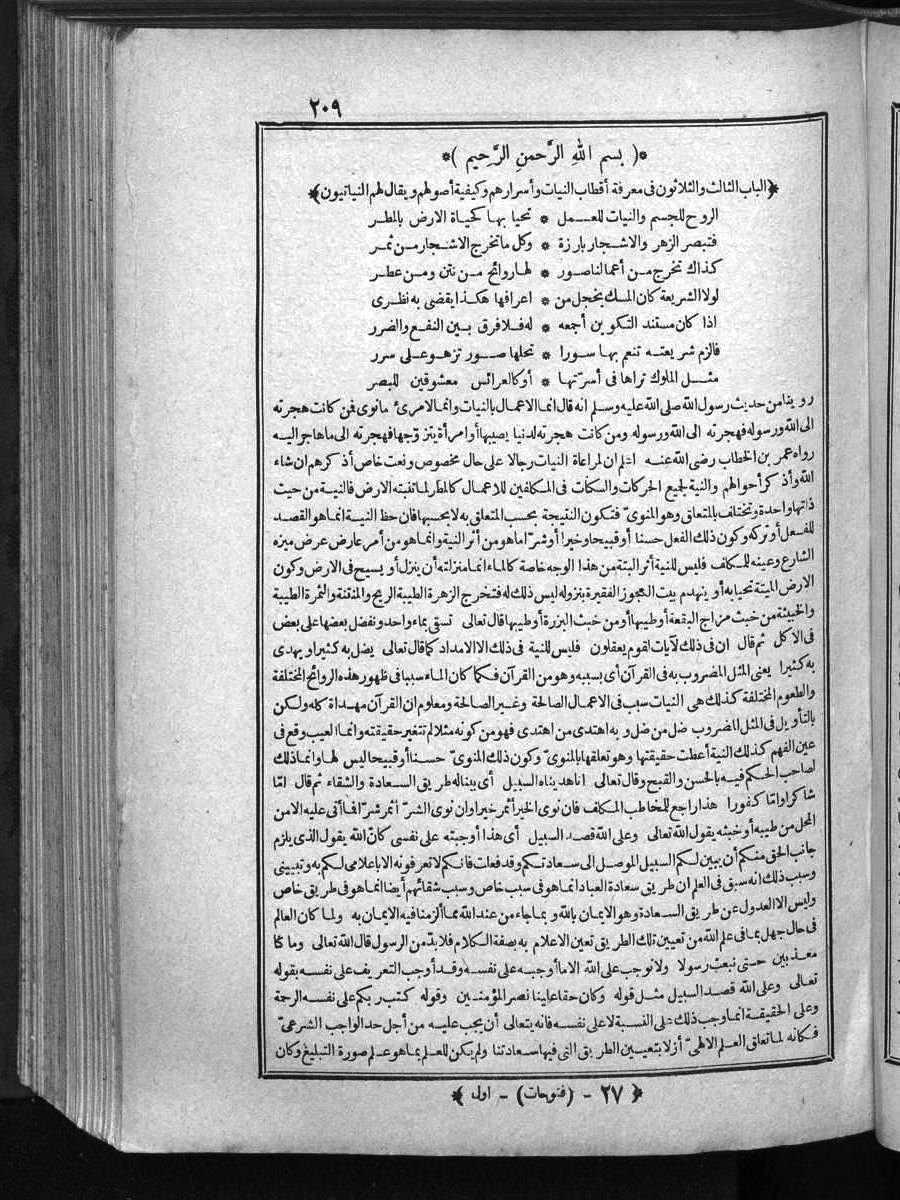 ٢٠٩
*( بسم الله الرَّحمنِ الرَّحِيم )*
﴿الباب الثالث والثلاثون فى معرفة أقطاب النيات وأسرارهم وكيفية أصولهم ويقال لهم النياتيون﴾
الروح للجسم والنيات للعمل * تحيا بها كحياة الارض بالمطر
فتبصر الزهر والاشجار بارزة * وكل ما تخرج الاشجار من ثمر
كذاك تخرج من أعمالنا صور * لها روائح من نتن ومن عطر
لولا الشريعة كان المسك يخجل من * اعرافها هكذا يقضى به نظرى
اذا كان مستند التكوين أجمعه * له فلا فرق بين النفع والضرر
فالزم شريعته تنعم بها سورا * تحلها صور تزهو على سرر
مثل الملوك تراها فى أسرّتها * أو كالعرائس معشوقين للبصر
روينا من حديث رسول الله صلى الله عليه وسلم انه قال انما الاعمال بالنيات وانما لامرئ مانوى فمن كانت هجرته
الى الله ورسوله فهجرته الى الله ورسوله ومن كانت هجرته لدنيا يصيبها أو امرأة يتزوّجها فهجرته الى ما هاجر اليه
رواه عمر بن الخطاب رضى الله عنه اعلم ان لمراعاة النيات رجالا على حال مخصوص ونعت خاص أذكرهم ان شاء
الله وأذكر أحوالهم والنية لجميع الحركات والسكنات فى المكلفين للاعمال كالمطر لما تنبته الارض فالنية من حيث
ذاتها واحدة وتختلف بالمتعلق وهو المنوىّ فتكون النتيجة بحسب المتعلق به لا بحسبها فان حظ النية انما هو القصد
للفعل أو تركه وكون ذلك الفعل حسنا أو قبيحا وخيرا أو شرّا ما هو من أثر النية وانما هو من أمر عارض عرض ميزه
الشارع وعينه للمكلف فليس للنية أثر البتة من هذا الوجه خاصة كالماء انما منزلته أن ينزل أو يسيح فى الارض وكون
الارض الميتة تحيا به أو ينهدم بيت العجوز الفقيرة بنزوله ليس ذلك له فتخرج الزهرة الطيبة الريح والمنتنة والثمرة الطيبة
والخبيثة من خبث مزاج البقعة أو طيبها أو من خبث البزرة أو طيبها قال تعالى تسقى بماء واحد ونفضل بعضها على بعض
فى الأكل ثم قال ان فى ذلك لآيات لقوم يعقلون فليس للنية فى ذلك الا الامداد كما قال تعالى يضل به كثيرا ويهدى
به كثيرا يعنى المثل المضروب به فى القرآن أى بسببه وهو من القرآن فكما كان الماء سببا فى ظهور هذه الروائح المختلفة
والطعوم المختلفة كذلك هى النيات سبب فى الاعمال الصالحة وغير الصالحة ومعلوم ان القرآن مهداة كله ولكن
بالتأويل فى المثل المضروب ضل من ضل وبه اهتدى من اهتدى فهو من كونه مثلا لم تتغير حقيقته وانما العيب وقع فى
عين الفهم كذلك النية أعطت حقيقتها وهو تعلقها بالمنوىّ وكون ذلك المنوىّ حسنا أو قبيحا ليس لها وانما ذلك
لصاحب الحكم فيه بالحسن والقبح وقال تعالى انا هديناه السبيل أى بيناله طريق السعادة والشقاء ثم قال امّا
شاكرا وامّا كفورا هذا راجع للمخاطب المكلف فان نوى الخير أثمر خيرا وان نوى الشرّ أثمر شرّا فما أتى عليه الا من
المحل من طيبه أو خبثه يقول الله تعالى وعلى الله قصد السبيل أى هذا أوجبته على نفسى كأنّ الله يقول الذى يلزم
جانب الحق منكم أن يبين لكم السبيل الموصل الى سعادتكم وقد فعلت فانكم لا تعرفونه الا باعلامى لكم به وتبيينى
وسبب ذلك انه سبق فى العلم ان طريق سعادة العباد انما هو فى سبب خاص وسبب شقائهم أيضا انما هو فى طريق خاص
وليس الا العدول عن طريق السعادة وهو الايمان بالله وبما جاء من عند الله مما ألزمنا فيه الايمان به ولما كان العالم
فى حال جهل بما فى علم الله من تعيين تلك الطريق تعين الاعلام به بصفة الكلام فلا بدّ من الرسول قال الله تعالى وما كنا
معذبين حتى نبعث رسولا ولا نوجب على الله الا ما أوجبه على نفسه وقد أوجب التعريف على نفسه بقوله
تعالى وعلى الله قصد السبيل مثل قوله وكان حقا علينا نصر المؤمنين وقوله كتب ربكم على نفسه الرحمة
وعلى الحقيقة انما وجب ذلك على النسبة لا على نفسه فانه يتعالى أن يجب عليه من أجل حد الواجب الشرعىّ
فكأنه لما تعلق العلم الالهىّ أزلا بتعيين الطريق التى فيها سعادتنا ولم يكن للعلم بما هو علم صورة التبليغ وكان
﴿ ٢٧ - (فتوحات) - اول ﴾